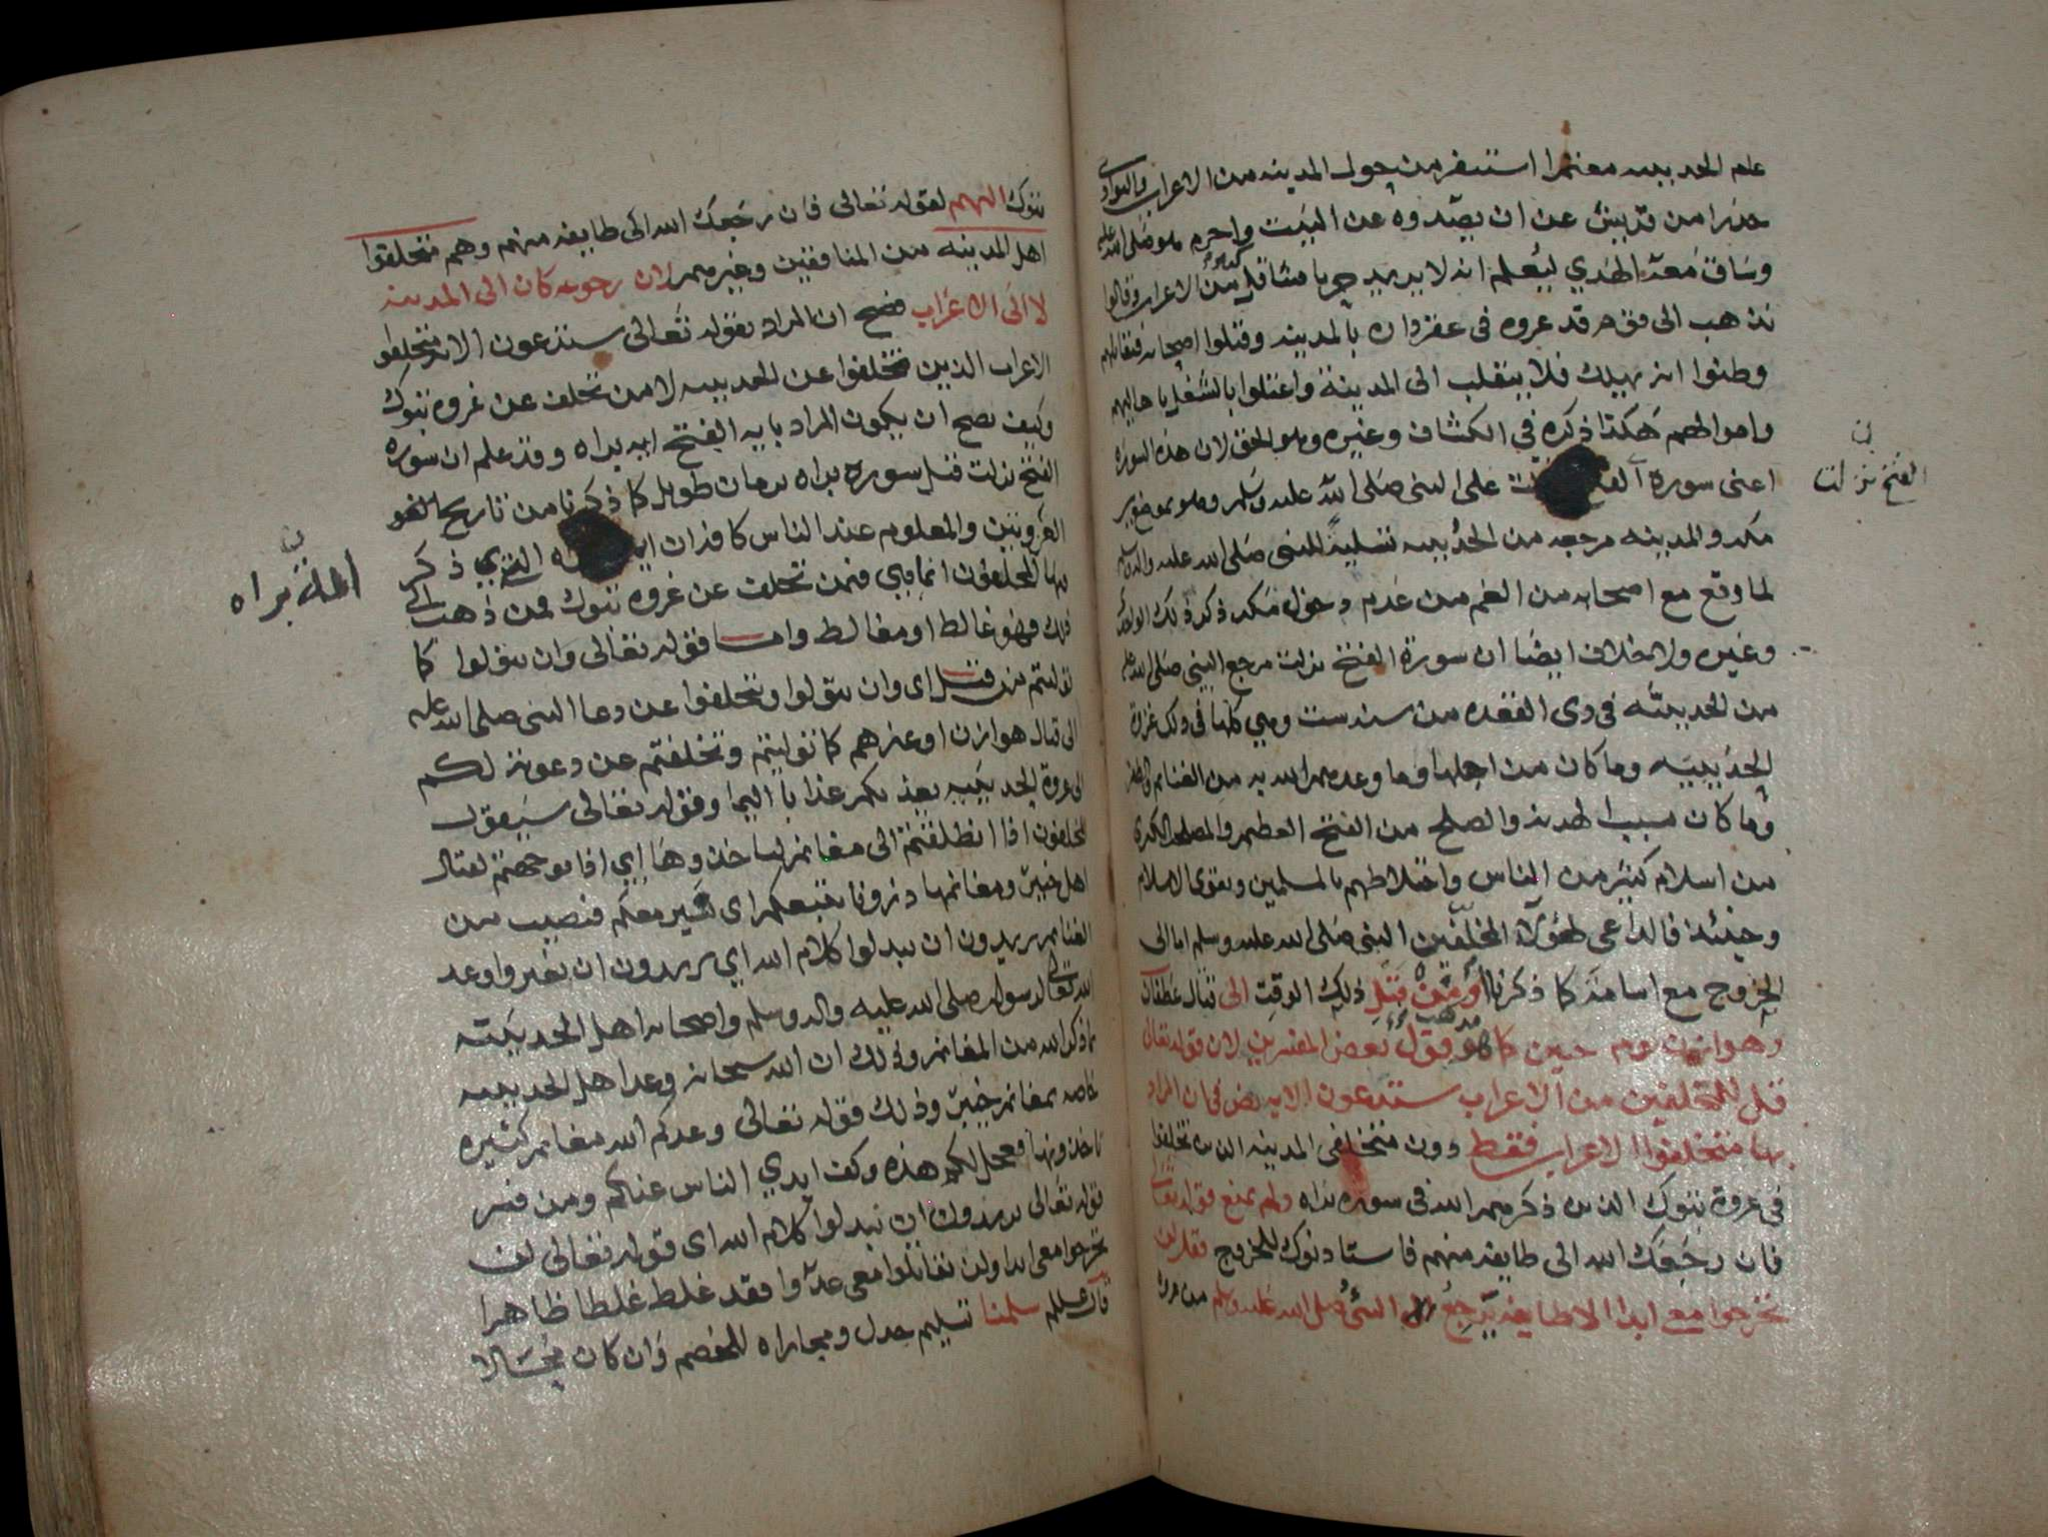 علم الحديبيه معتمرا استنفر من حول المدينه من الاعراب والبوادى
حذرا من قريش عن ان يصدوه عن البيت واحرم هو صلى الله عليه
وساق معه الهدي ليعلم انه لا يريد حربا فتثاقل كثير من الاعراب وقالوا
نذهب الى قوم قد غزوه فى عقر داره بالمدينه وقتلوا اصحابه فنقاتلهم
وظنوا انه يهلك فلا ينقلب الى المدينة واعتلوا بالشغل باهاليهم
واموالهم هكذا ذكره في الكشاف وغيره وهو الحق لان هذه السورة
اعنى سورة الفتح نزلت على النبى صلى الله عليه وسلم وهو بموضع بين
مكه والمدينه مرجعه من الحديبيه تسلية للنبى صلى الله عليه واله وسلم
لما وقع مع اصحابه من الغم من عدم دخول مكه ذكر ذلك الواحدى
وغيره ولا خلاف ايضا ان سورة الفتح نزلت مرجع النبي صلى الله عليه
من الحديبيه فى ذى القعده من سنه ست وهي كلها فى ذلك غزاة
الحديبيه وما كان من اهلها وما وعدهم الله به من الغنايم
وما كان سبب الهدنه والصلح من الفتح العظيم والمصلحه الكبرى
من اسلام كثير من الناس واختلاطهم بالمسلمين وتقوى الاسلام
وحينئذ فالداعى لهؤلاء المخلفين النبى صلى الله عليه وسلم اما الى
الخروج مع اسامة كما ذكرنا او من قبل ذلك الوقت الى قتال غطفان
وهوازن يوم حنين كما هو قول بعض المفسرين لان قوله تعالى
قل للمخلفين من الاعراب ستدعون الاية نص فى ان المراد
بها متخلفوا الاعراب فقط دون متخلفى المدينه الذين تخلفوا
فى غزوة تبوك الذين ذكرهم الله فى سورة براه ولم يمنع قوله تعالى
فان رجعك الله الى طايفه منهم فاستاذنوك للخروج فقل لن
تخرجوا معي ابدا الا طايفه يرجع النبى صلى الله عليه وسلم من غزوة
الفتح نزلت
تبوك اليهم لقوله تعالى فان رجعك الله الى طايفه منهم وهم متخلفوا
اهل المدينه من المنافقين وغيرهم لان رجوعه كان الى المدينه
لا الى الاعراب فصح ان المراد بقوله تعالى ستدعون الايه متخلفوا
الاعراب الذين تخلفوا عن الحديبيه لا من تخلف عن غزوه تبوك
وكيف يصح ان يكون المراد بايه الفتح ايه براه وقد علم ان سوره
الفتح نزلت قبل سورة براه بزمان طويل كما ذكرنا من تاريخ
الغزوتين والمعلوم عند الناس كافة ان براه التي ذكر
فيها المخلفون انما هي فيمن تخلف عن غزوه تبوك فمن ذهب الى
ذلك فهو غالط او مغالط واما قوله تعالى وان تتولوا كما
توليتم من قبل اى وان تتولوا وتتخلفوا عن دعا النبى صلى الله عليه
الى قتال هوازن او غيرهم كما توليتم وتخلفتم عن دعوته لكم
الى غزوة الحديبيه يعذبكم عذابا اليما وقوله تعالى سيقول
المخلفون اذا انطلقتم الى مغانم لتاخذوها اي اذا توجهتم لقتال
اهل خيبر ومغانمها ذرونا نتبعكم اى نسير معكم فنصيب من
الغنايم يريدون ان يبدلوا كلام الله اي يريدون ان يغيروا وعد
الله تعالى لرسوله صلى الله عليه واله وسلم واصحابه اهل الحديبيه
بما ذكر الله من المغانم وذلك ان الله سبحانه وعد اهل الحديبيه
خاصه بمغانم خيبر وذلك قوله تعالى وعدكم الله مغانم كثيره
تاخذونها فعجل لكم هذه وكف ايدي الناس عنكم ومن فسر
قوله تعالى يريدون ان يبدلوا كلام الله اى قوله تعالى لن
تخرجوا معى ابدا ولن تقاتلوا معى عدوا فقد غلط غلطا ظاهرا
سلمنا تسليم جدل ومجاراه للخصم وان كان محالا
براه